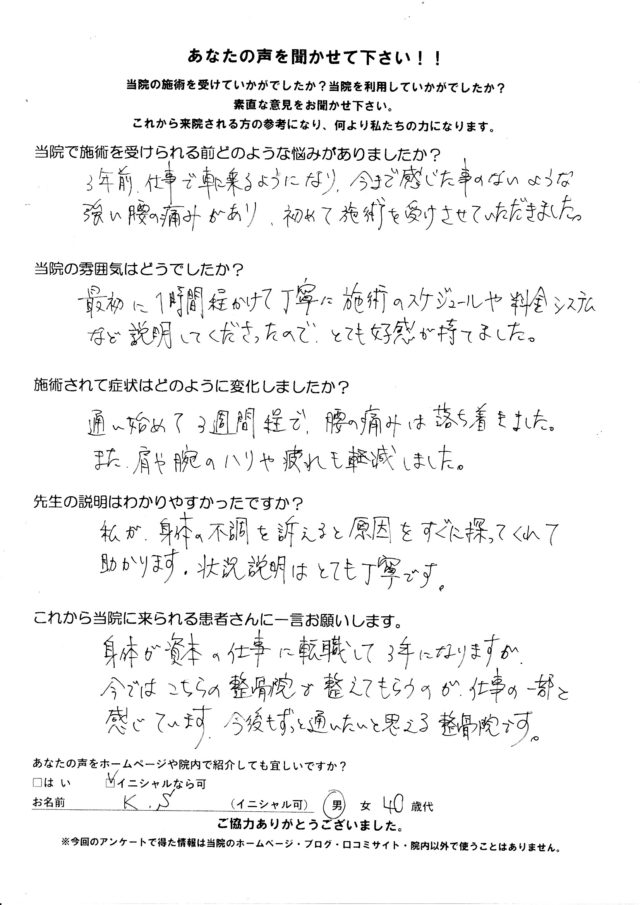 あなたの声を聞かせて下さい！！
当院の施術を受けていかがでしたか？当院を利用していかがでしたか？
素直な意見をお聞かせ下さい。
これから来院される方の参考になり、何より私たちの力になります。
当院で施術を受けられる前どのような悩みがありましたか？
3年前、仕事で車に乗るようになり、今まで感じた事のないような
強い腰の痛みがあり、初めて施術を受けさせていただきました。
当院の雰囲気はどうでしたか？
最初に1時間程かけて丁寧に施術のスケジュールや料金システム
など説明してくださったので、とても好感が持てました。
施術されて症状はどのように変化しましたか？
通い始めて3週間程で、腰の痛みは落ち着きました。
また、肩や腕のハリや疲れも軽減しました。
先生の説明はわかりやすかったですか？
私が、身体の不調を訴えると原因をすぐに探ってくれて
助かります。状況説明はとても丁寧です。
これから当院に来られる患者さんに一言お願いします。
身体が資本の仕事に転職して3年になりますが、
今ではこちらの整骨院で整えてもらうのが、仕事の一部と
感じています。今後もずっと通いたいと思える整骨院です。
あなたの声をホームページや院内で紹介しても宜しいですか？
□はい ☑イニシャルなら可
お名前 K.S （イニシャル可） 男 女 40 歳代
ご協力ありがとうございました。
※今回のアンケートで得た情報は当院のホームページ・ブログ・口コミサイト・院内以外で使うことはありません。